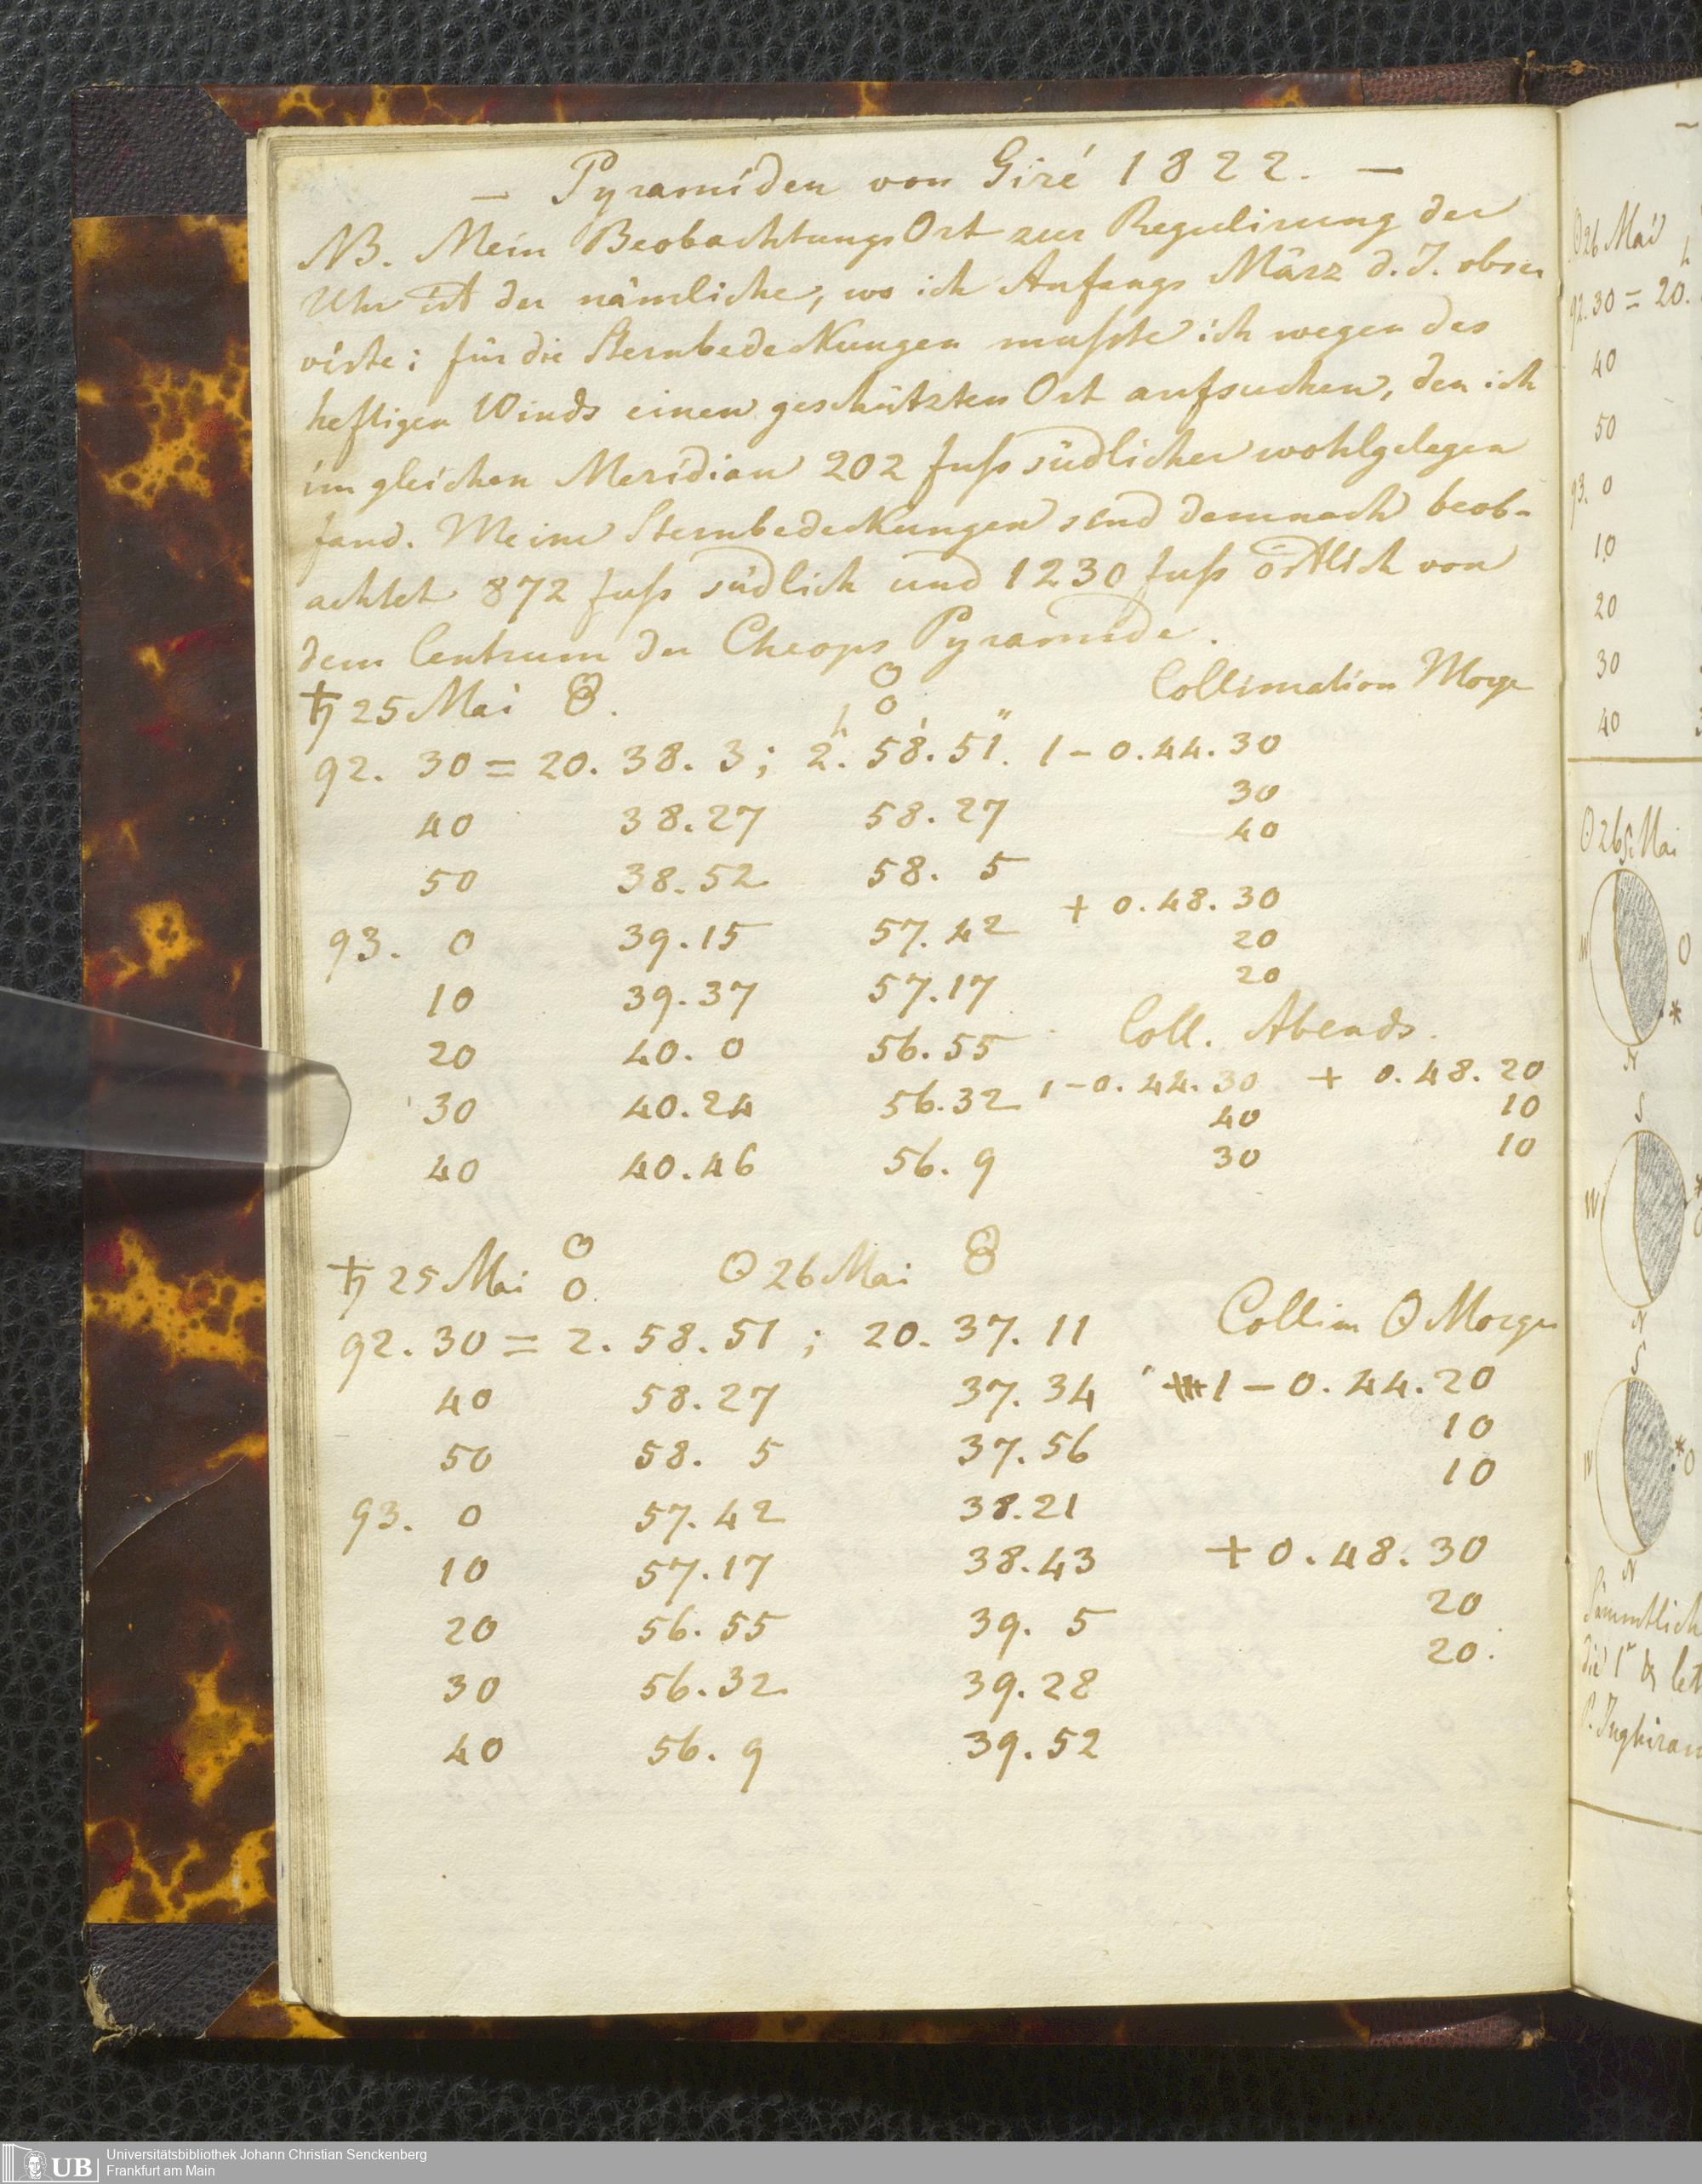 — Pyramiden von Gizé 1822. —
NB. Mein Beobachtungs Ort zur Regulirung der
Uhr ist der nämliche, wo ich Anfangs März d. J. obser
virte; für die Sternbedeckungen mußte ich wegen des
heftigen Winds einen geschützten Ort aufsuchen, den ich
im gleichen Meridian 202 fuß südlicher wohlgelegen
fand. Meine Sternbedeckungen sind demnach beob-
achtet 872 fuß südlich und 1230 fuß östlich von
dem Centrum der Cheops Pyramide.
♄ 25 Mai Collimation Morge
92. 30 = 20. 38. 3; 2h. 58'. 51". 1 - 0. 44. 30
40 38. 27 58. 27 30
50 38. 52 58. 5 40
93. 0 39. 15 57. 42 + 0. 48. 30
10 39. 37 57. 17 20
20
20 40. 0 56. 55 Coll. Abends.
30 40. 24 56. 32 1 - 0. 44. 30 + 0. 48. 20
40 10
40 40. 46 56. 9 30 10
♄ 25 Mai ☉ 26 Mai
92. 30 = 2. 58. 51; 20. 37. 11 Collim ☉ Morge
40 58. 27 37. 34 1 - 0. 44. 20
50 58. 5 37. 56 10
10
93. 0 57. 42 38. 21
10 57. 17 38. 43 + 0. 48. 30
20 56. 55 39. 5 20
30 56. 32 39. 28 20.
40 56. 9 39. 52
☉ 26 Mai
92. 30 = 20.
40
50
93. 0
10
20
30
40
☉ 26 Mai
W
O
*
N
S
W
*
N
S
W
*O
N
Sämmtlich
die 1r & let
P. Inghiram
UB
Universitätsbibliothek Johann Christian Senckenberg
Frankfurt am Main